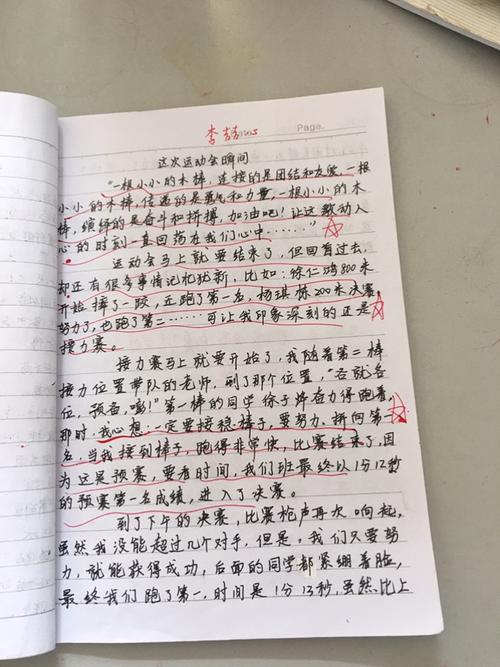 李喆
Page.
这次运动会瞬间
“一根小小的木棒，连接的是团结和友爱，一根
小小的木棒，传递的是勇气和力量，一根小小的木
棒，缤绎的是奋斗和拼搏，加油吧！让这激动人
心的时刻一直回荡在我们心中……”
运动会马上就要结束了，但回看过去，
却还有很多事情记忆犹新，比如：徐仁鸿800米
开始摔了一跤，还跑了第一名，杨琪栋200米决赛，
努力了，也跑了第二……可让我印象深刻的还是
接力赛。
接力赛马上就要开始了，我随着第二棒
接力位置带队的老师，到了那个位置，“各就各
位，预备，嘭！”第一棒的同学徐子烨奋力得跑着，
那时，我心想：一定要接稳棒子，要努力，拼向第一
名，当我接到棒子，跑得非常快，比赛结束了，因
为这是预赛，要看时间，我们班最终以1分12秒
的预赛第一名成绩，进入了决赛。
到了下午的决赛，比赛枪声再次响起，
虽然我没能超过几个对手，但是，我们只要努
力，就能获得成功，后面的同学都紧绷着脸，
最终我们跑了第一，时间是1分13秒，虽然比上